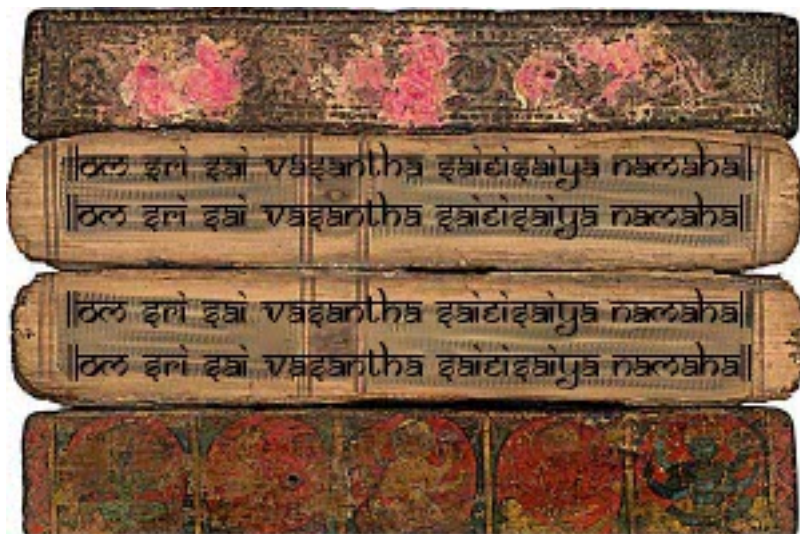 ||om sri sai vasantha saieisaiya namaha||
||om sri sai vasantha saieisaiya namaha||
||om sri sai vasantha saieisaiya namaha||
||om sri sai vasantha saieisaiya namaha||